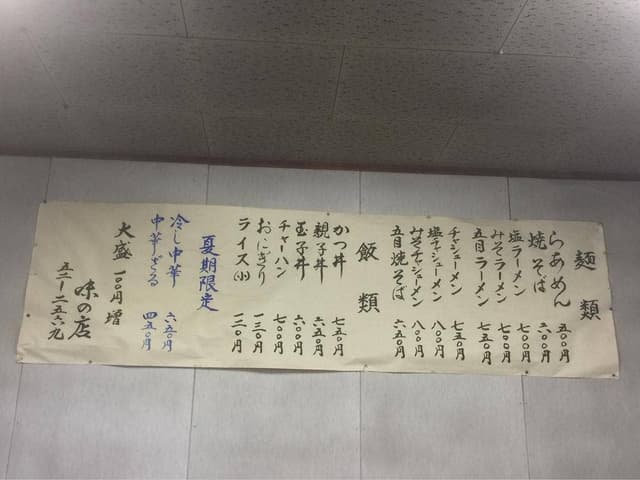 麺類
らあめん 五〇〇円
焼そば 六〇〇円
塩ラーメン 七〇〇円
みそラーメン 七〇〇円
五目ラーメン 七五〇円
チャシューメン 七五〇円
塩チャシューメン 八〇〇円
みそチャシューメン 八〇〇円
五目焼そば 六五〇円
飯類
かつ丼 七五〇円
親子丼 六五〇円
玉子丼 六〇〇円
チャーハン 七〇〇円
おにぎり 一三〇円
ライス(小) 一二〇円
夏期限定
冷し中華 六五〇円
中華ざる 四五〇円
大盛 一〇〇円増
味の店
五二-二五六九